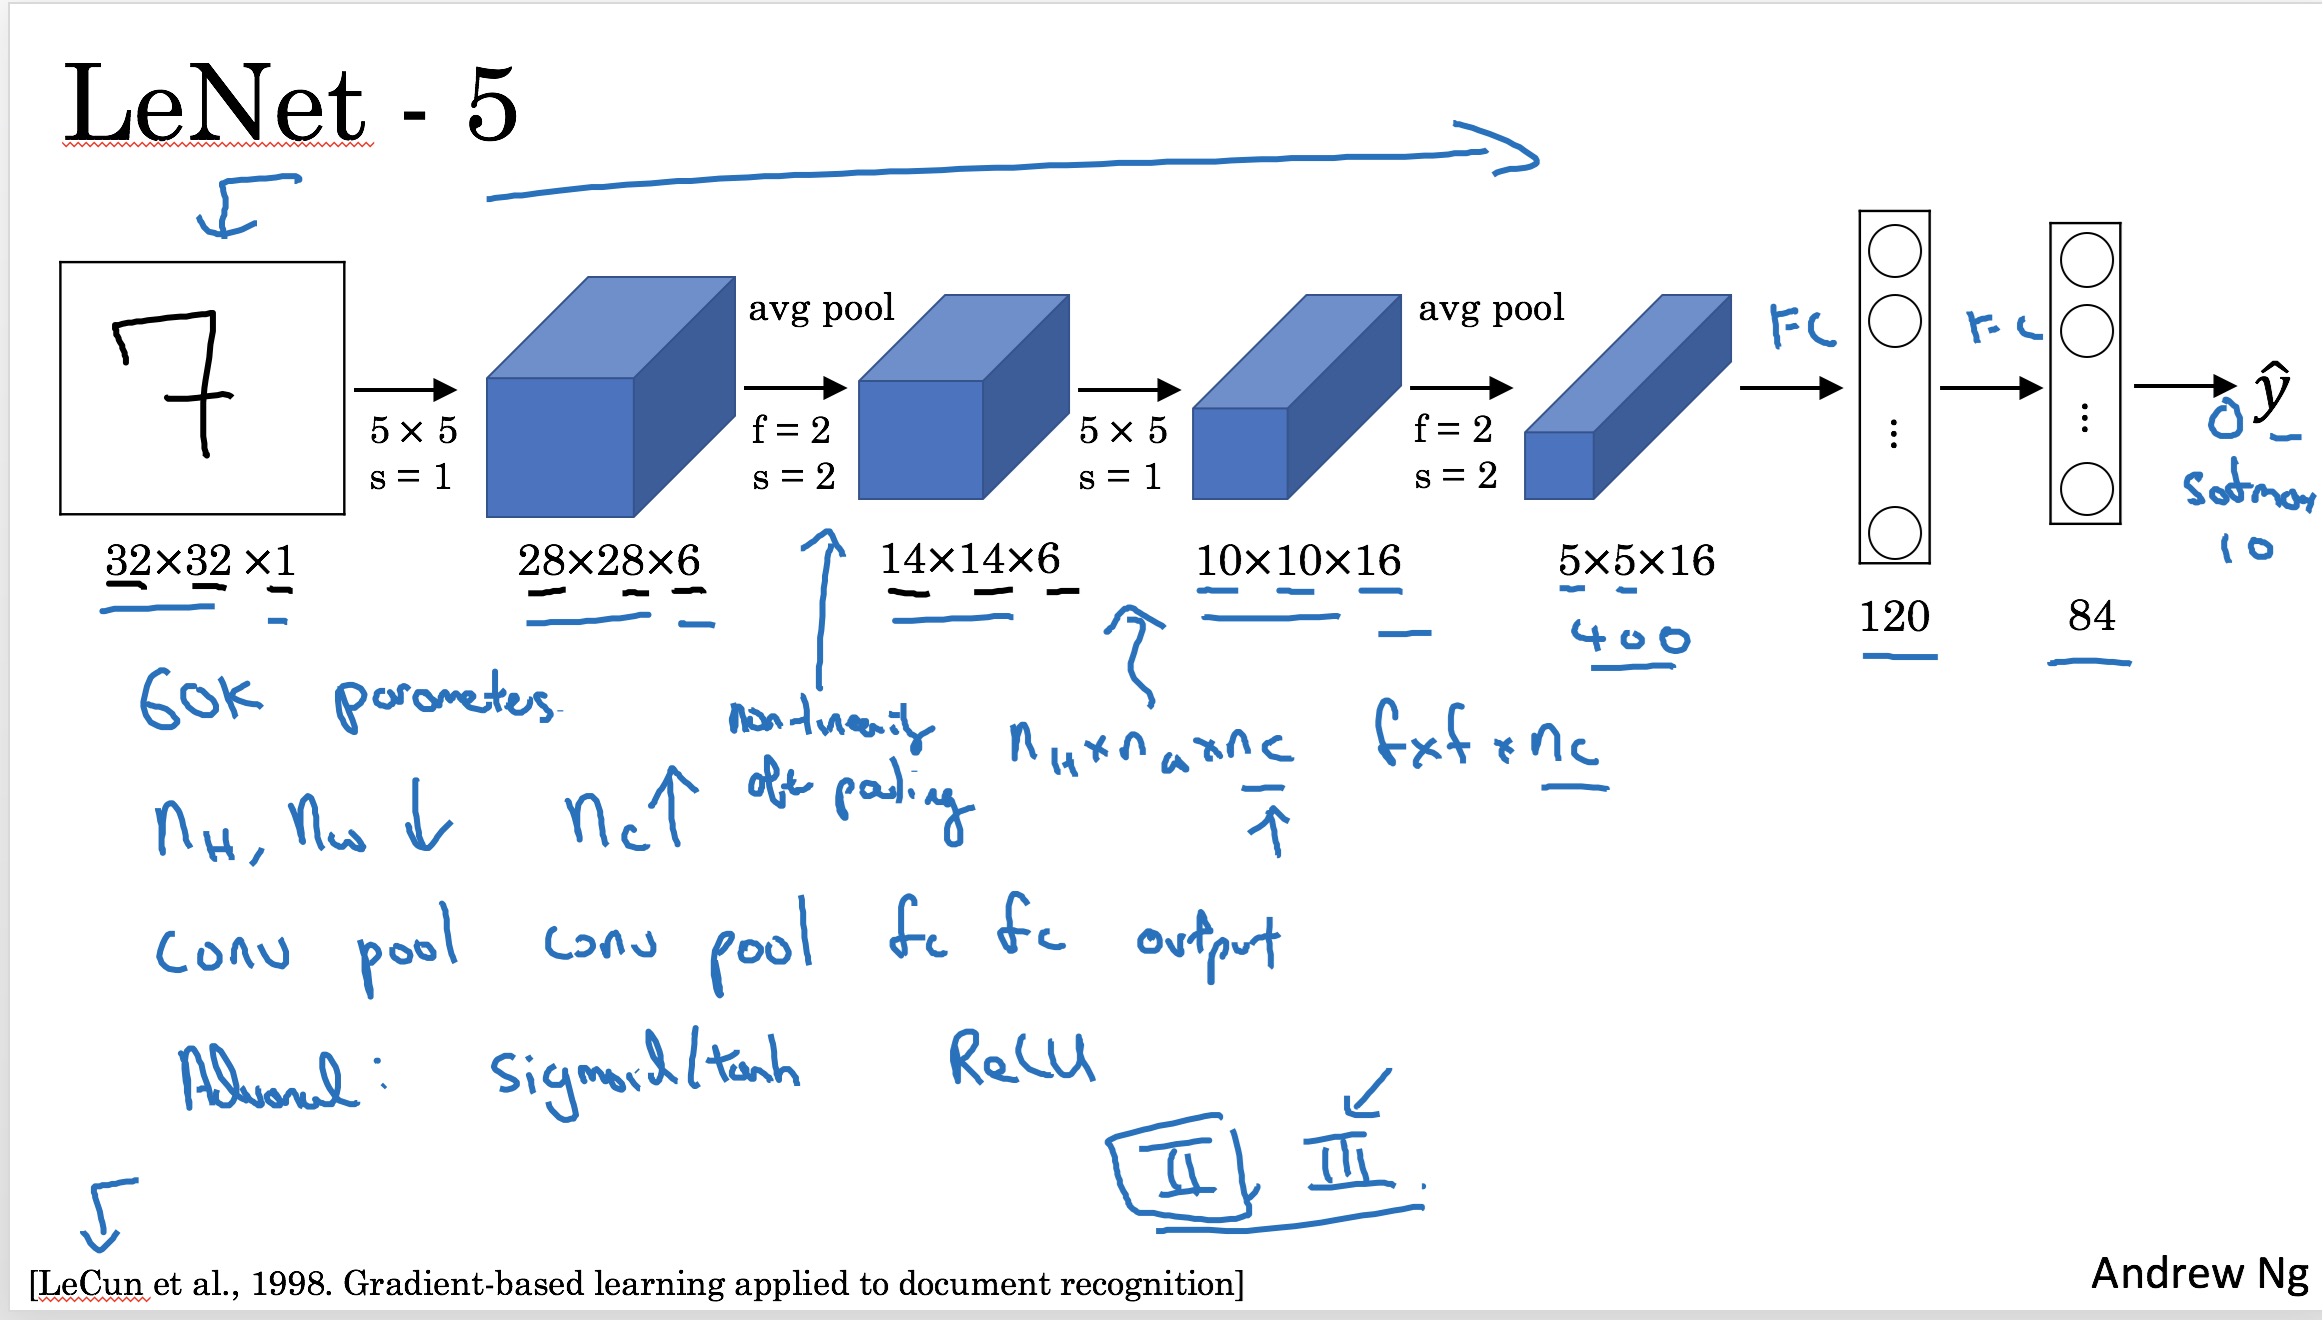 LeNet - 5
7
avg pool
avg pool
FC
FC
ŷ
5 × 5
s = 1
f = 2
s = 2
5 × 5
s = 1
f = 2
s = 2
⋮
⋮
softmax
10
32×32 ×1
28×28×6
14×14×6
10×10×16
5×5×16
400
120
84
60K parameters.
non-linearity
after pooling
nH×nW×nC f×f×nC
nH, nW ↓ nC ↑
conv pool conv pool fc fc output
Advanced: sigmoid/tanh ReLU
II, III.
[LeCun et al., 1998. Gradient-based learning applied to document recognition]
Andrew Ng